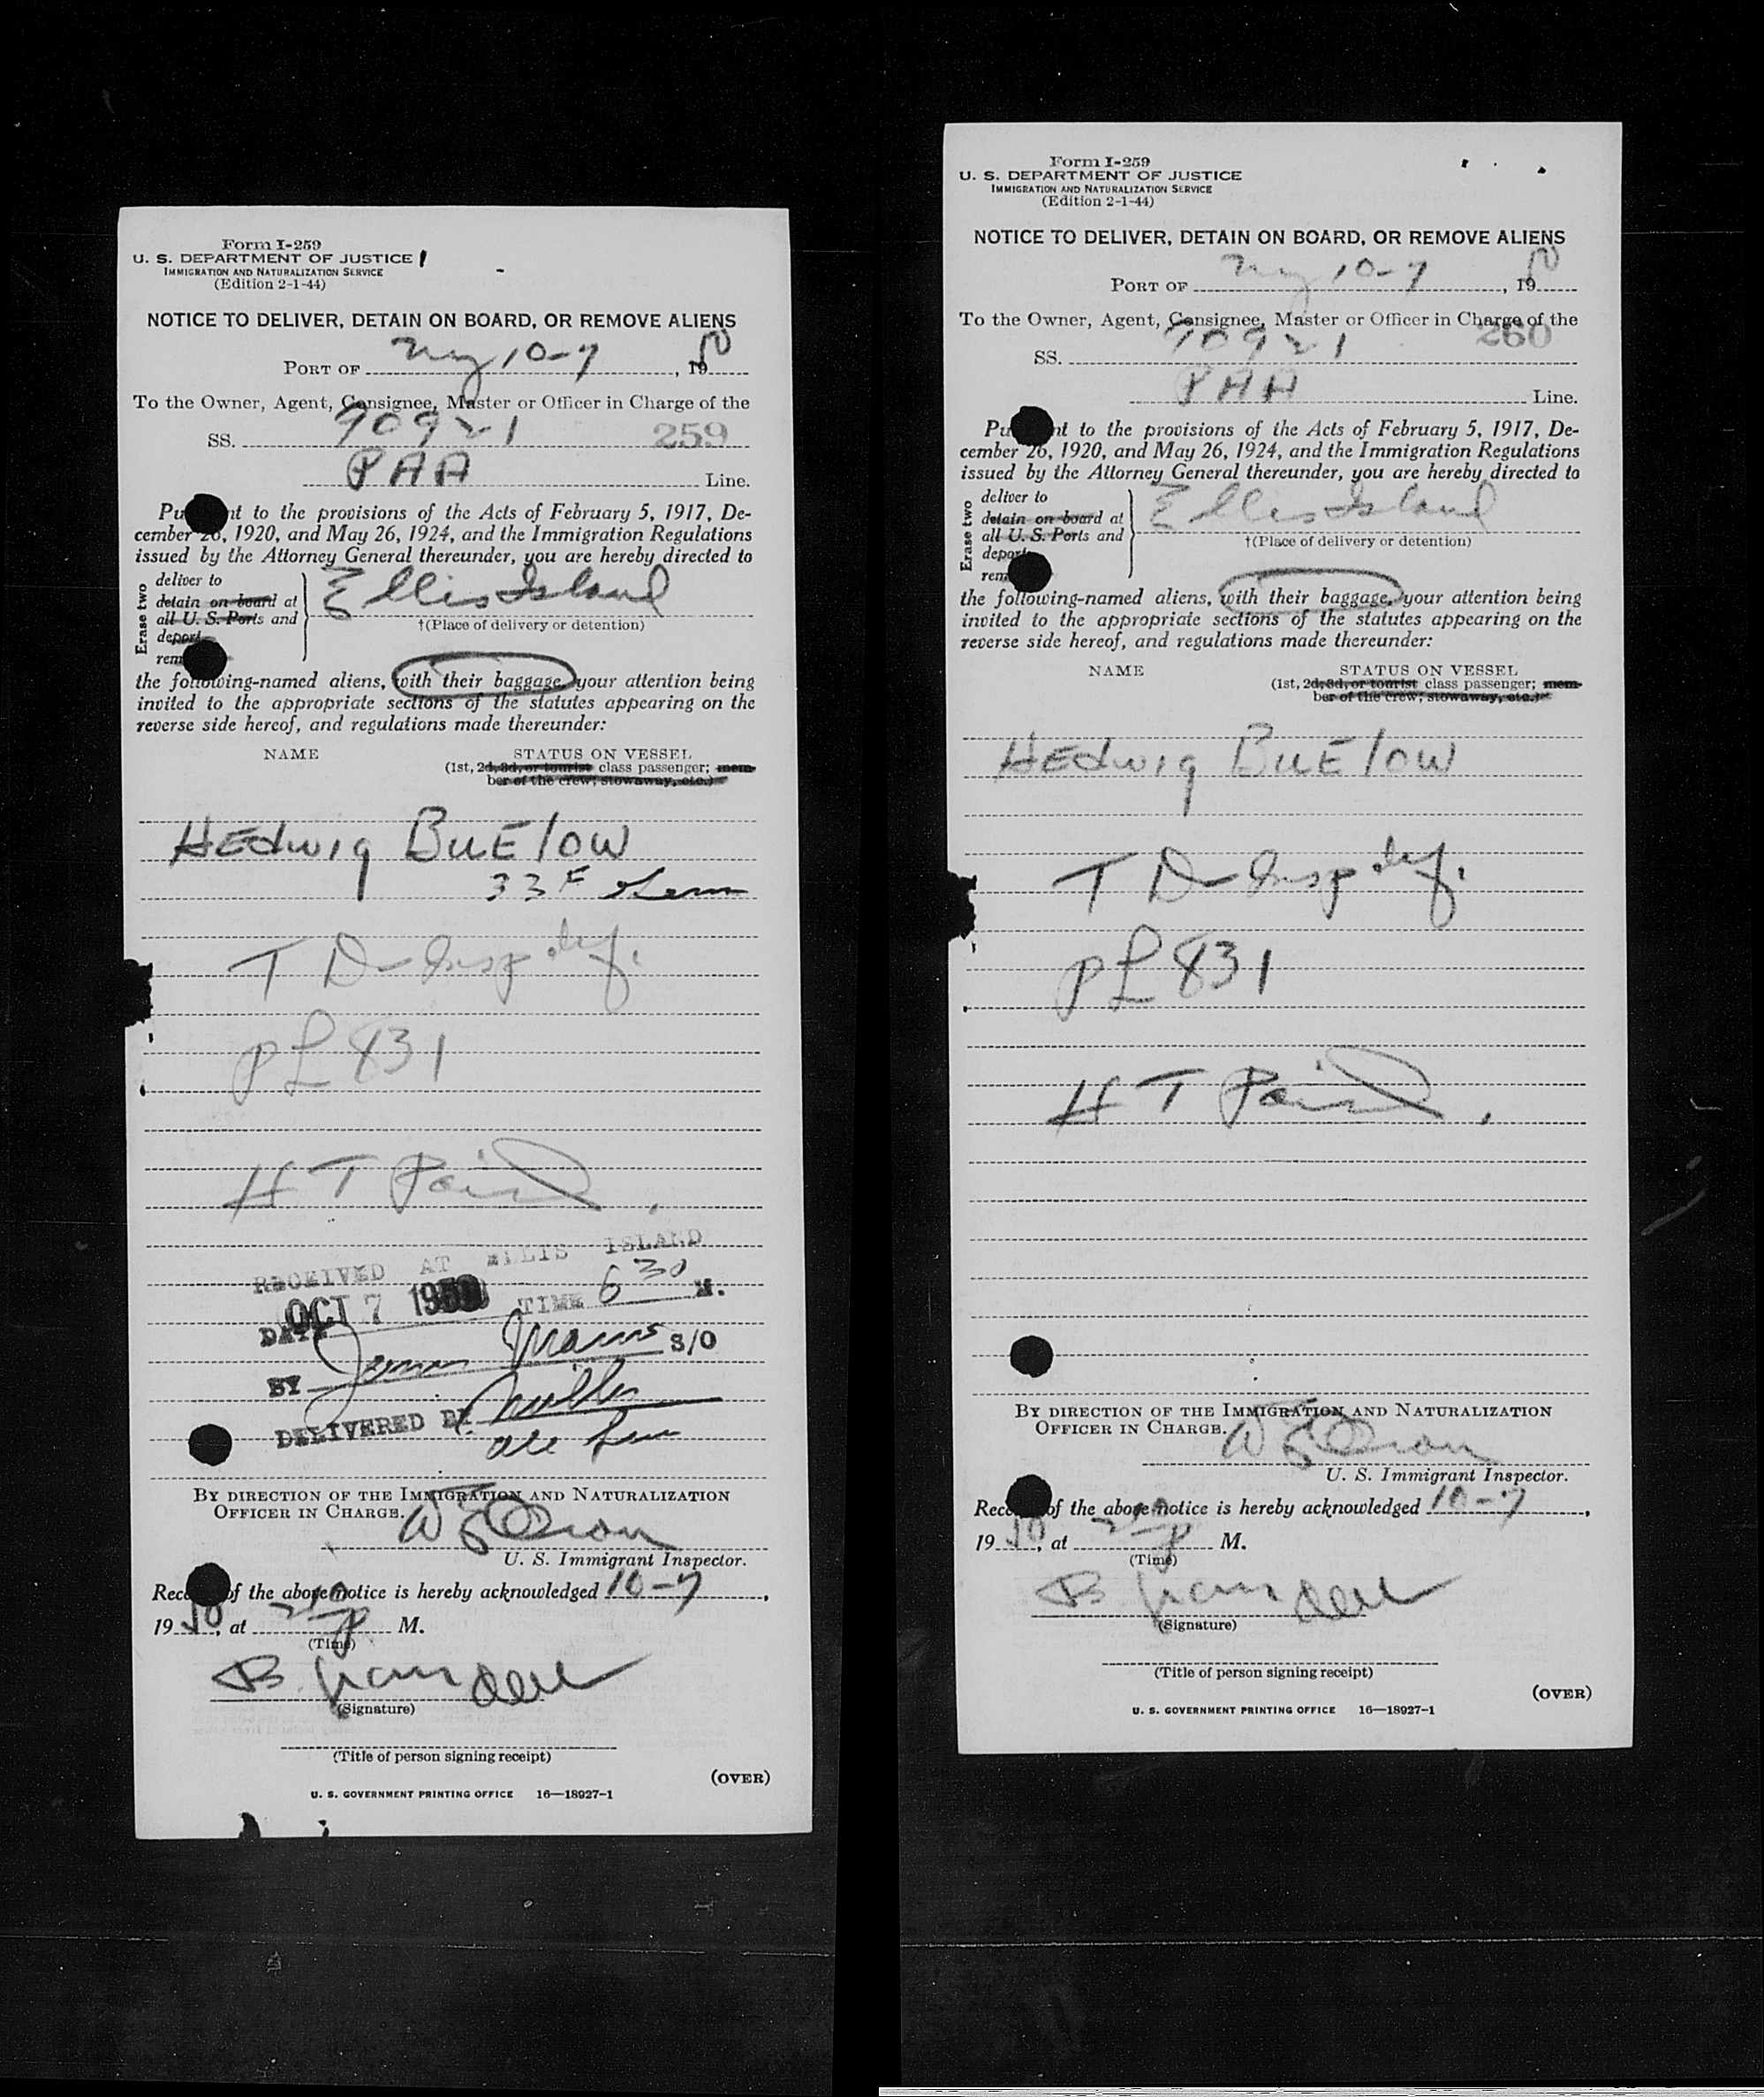 Form I-259
U. S. DEPARTMENT OF JUSTICE
IMMIGRATION AND NATURALIZATION SERVICE
(Edition 2-1-44)
NOTICE TO DELIVER, DETAIN ON BOARD, OR REMOVE ALIENS
PORT OF NY 10-7, 1950
To the Owner, Agent, Consignee, Master or Officer in Charge of the
SS. 90921 259
PAA Line.
Pu nt to the provisions of the Acts of February 5, 1917, De-
cember 26, 1920, and May 26, 1924, and the Immigration Regulations
issued by the Attorney General thereunder, you are hereby directed to
Erase two
deliver to
detain on board at
all U. S. Ports and
deport
rem
Ellis Island
†(Place of delivery or detention)
the following-named aliens, with their baggage, your attention being
invited to the appropriate sections of the statutes appearing on the
reverse side hereof, and regulations made thereunder:
NAME STATUS ON VESSEL
(1st, 2d, 3d, or tourist class passenger; mem-
ber of the crew; stowaway, etc.)
HEdwig BuElow
33 F
T D Insp
PL 831
H T Paid
RECEIVED AT ELLIS ISLAND
DATE OCT 7 1950 TIME 6 30 M.
BY S/O
DELIVERED BY Miller
BY DIRECTION OF THE IMMIGRATION AND NATURALIZATION
OFFICER IN CHARGE.
U. S. Immigrant Inspector.
Rece of the above notice is hereby acknowledged 10-7,
1950, at M.
(Time)
B.
(Signature)
(Title of person signing receipt)
(OVER)
U. S. GOVERNMENT PRINTING OFFICE 16—18927-1
Form I-259
U. S. DEPARTMENT OF JUSTICE
IMMIGRATION AND NATURALIZATION SERVICE
(Edition 2-1-44)
NOTICE TO DELIVER, DETAIN ON BOARD, OR REMOVE ALIENS
PORT OF NY 10-7, 1950
To the Owner, Agent, Consignee, Master or Officer in Charge of the
SS. 90921 260
PAA Line.
Pu nt to the provisions of the Acts of February 5, 1917, De-
cember 26, 1920, and May 26, 1924, and the Immigration Regulations
issued by the Attorney General thereunder, you are hereby directed to
Erase two
deliver to
detain on board at
all U. S. Ports and
deport
rem
Ellis Island
†(Place of delivery or detention)
the following-named aliens, with their baggage, your attention being
invited to the appropriate sections of the statutes appearing on the
reverse side hereof, and regulations made thereunder:
NAME STATUS ON VESSEL
(1st, 2d, 3d, or tourist class passenger; mem-
ber of the crew; stowaway, etc.)
HEdwig BuElow
T D Insp
PL 831
H T Paid
BY DIRECTION OF THE IMMIGRATION AND NATURALIZATION
OFFICER IN CHARGE.
U. S. Immigrant Inspector.
Rece of the above notice is hereby acknowledged 10-7,
1950, at M.
(Time)
B.
(Signature)
(Title of person signing receipt)
(OVER)
U. S. GOVERNMENT PRINTING OFFICE 16—18927-1